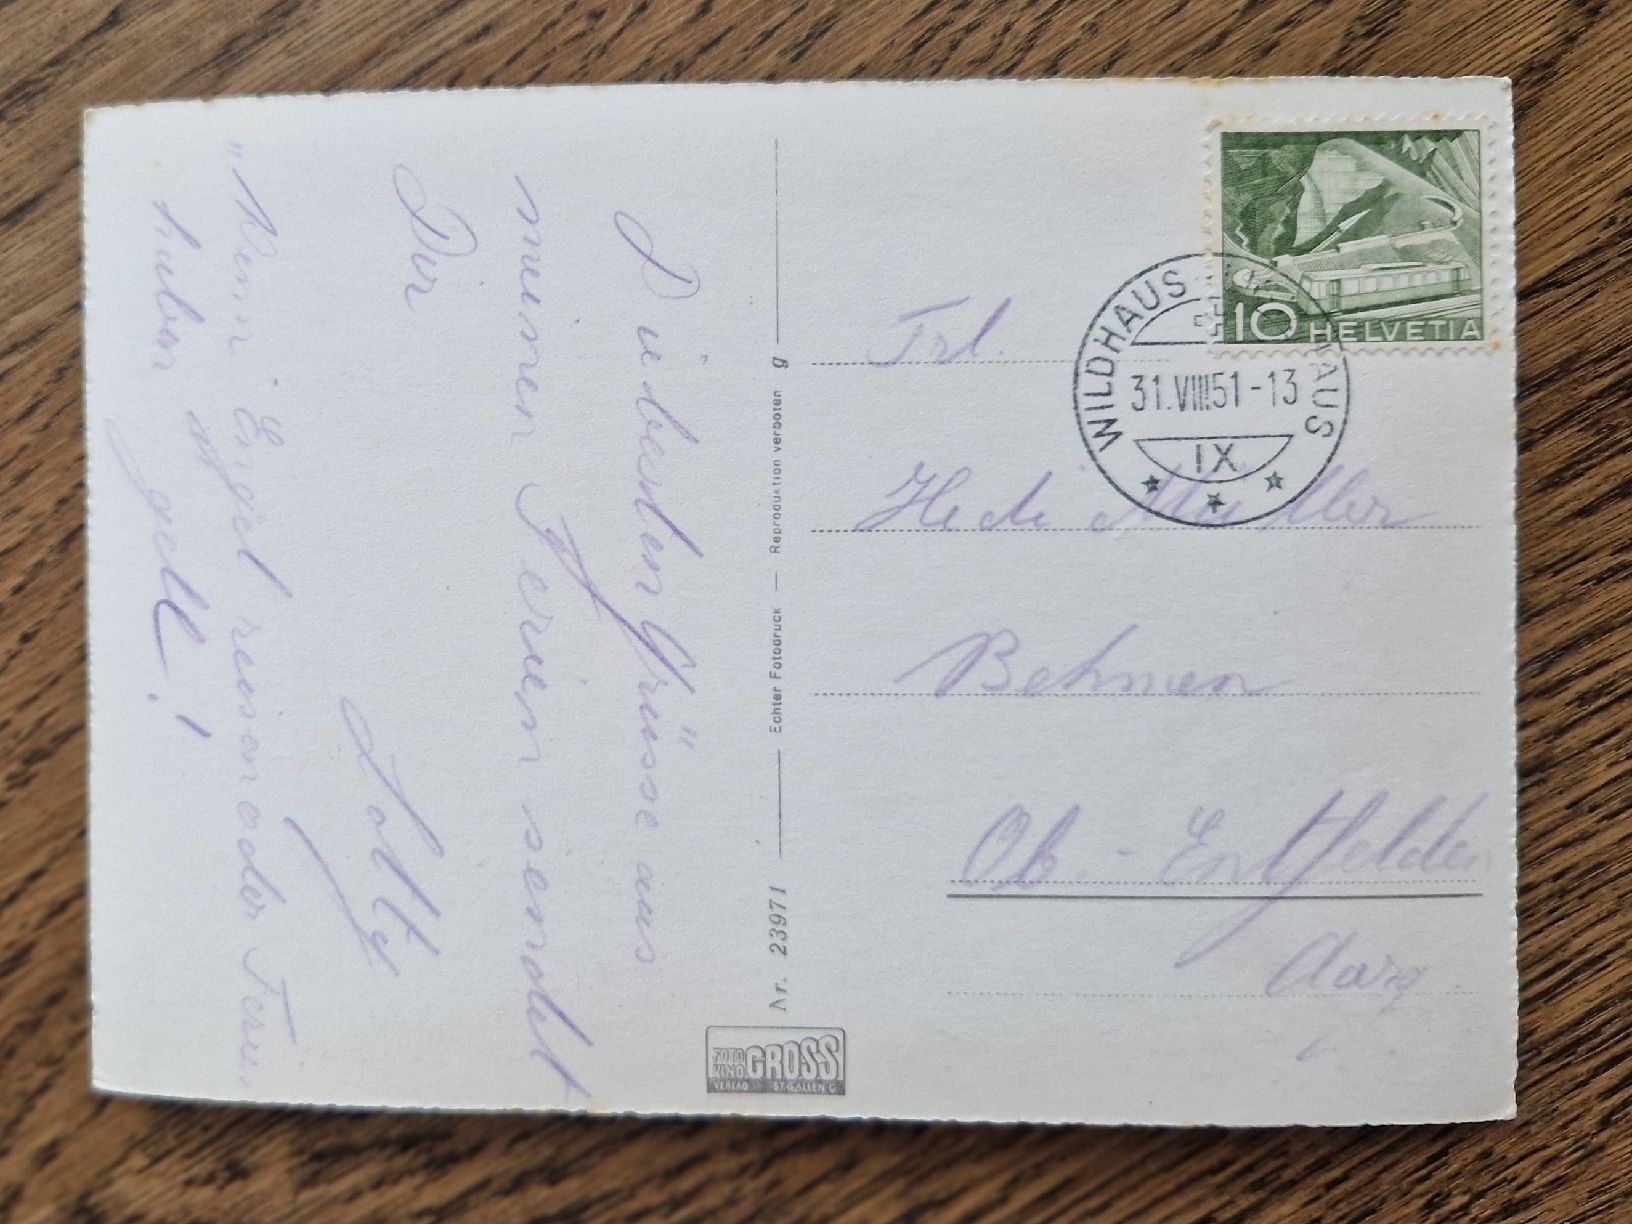 Die besten Grüsse aus
meinen Ferien sendet
Dir
Lotty
"Wenn Engel reisen oder Ferien
haben gell!"
Nr. 23971 Echter Fotodruck — Reproduktion verboten g
FOTO KINO GROSS
VERLAG ST. GALLEN G
10 HELVETIA
WILDHAUS
31.VIII51-13
IX
Frl.
Hedi Müller
Ob.-Entfelden
Aarg.